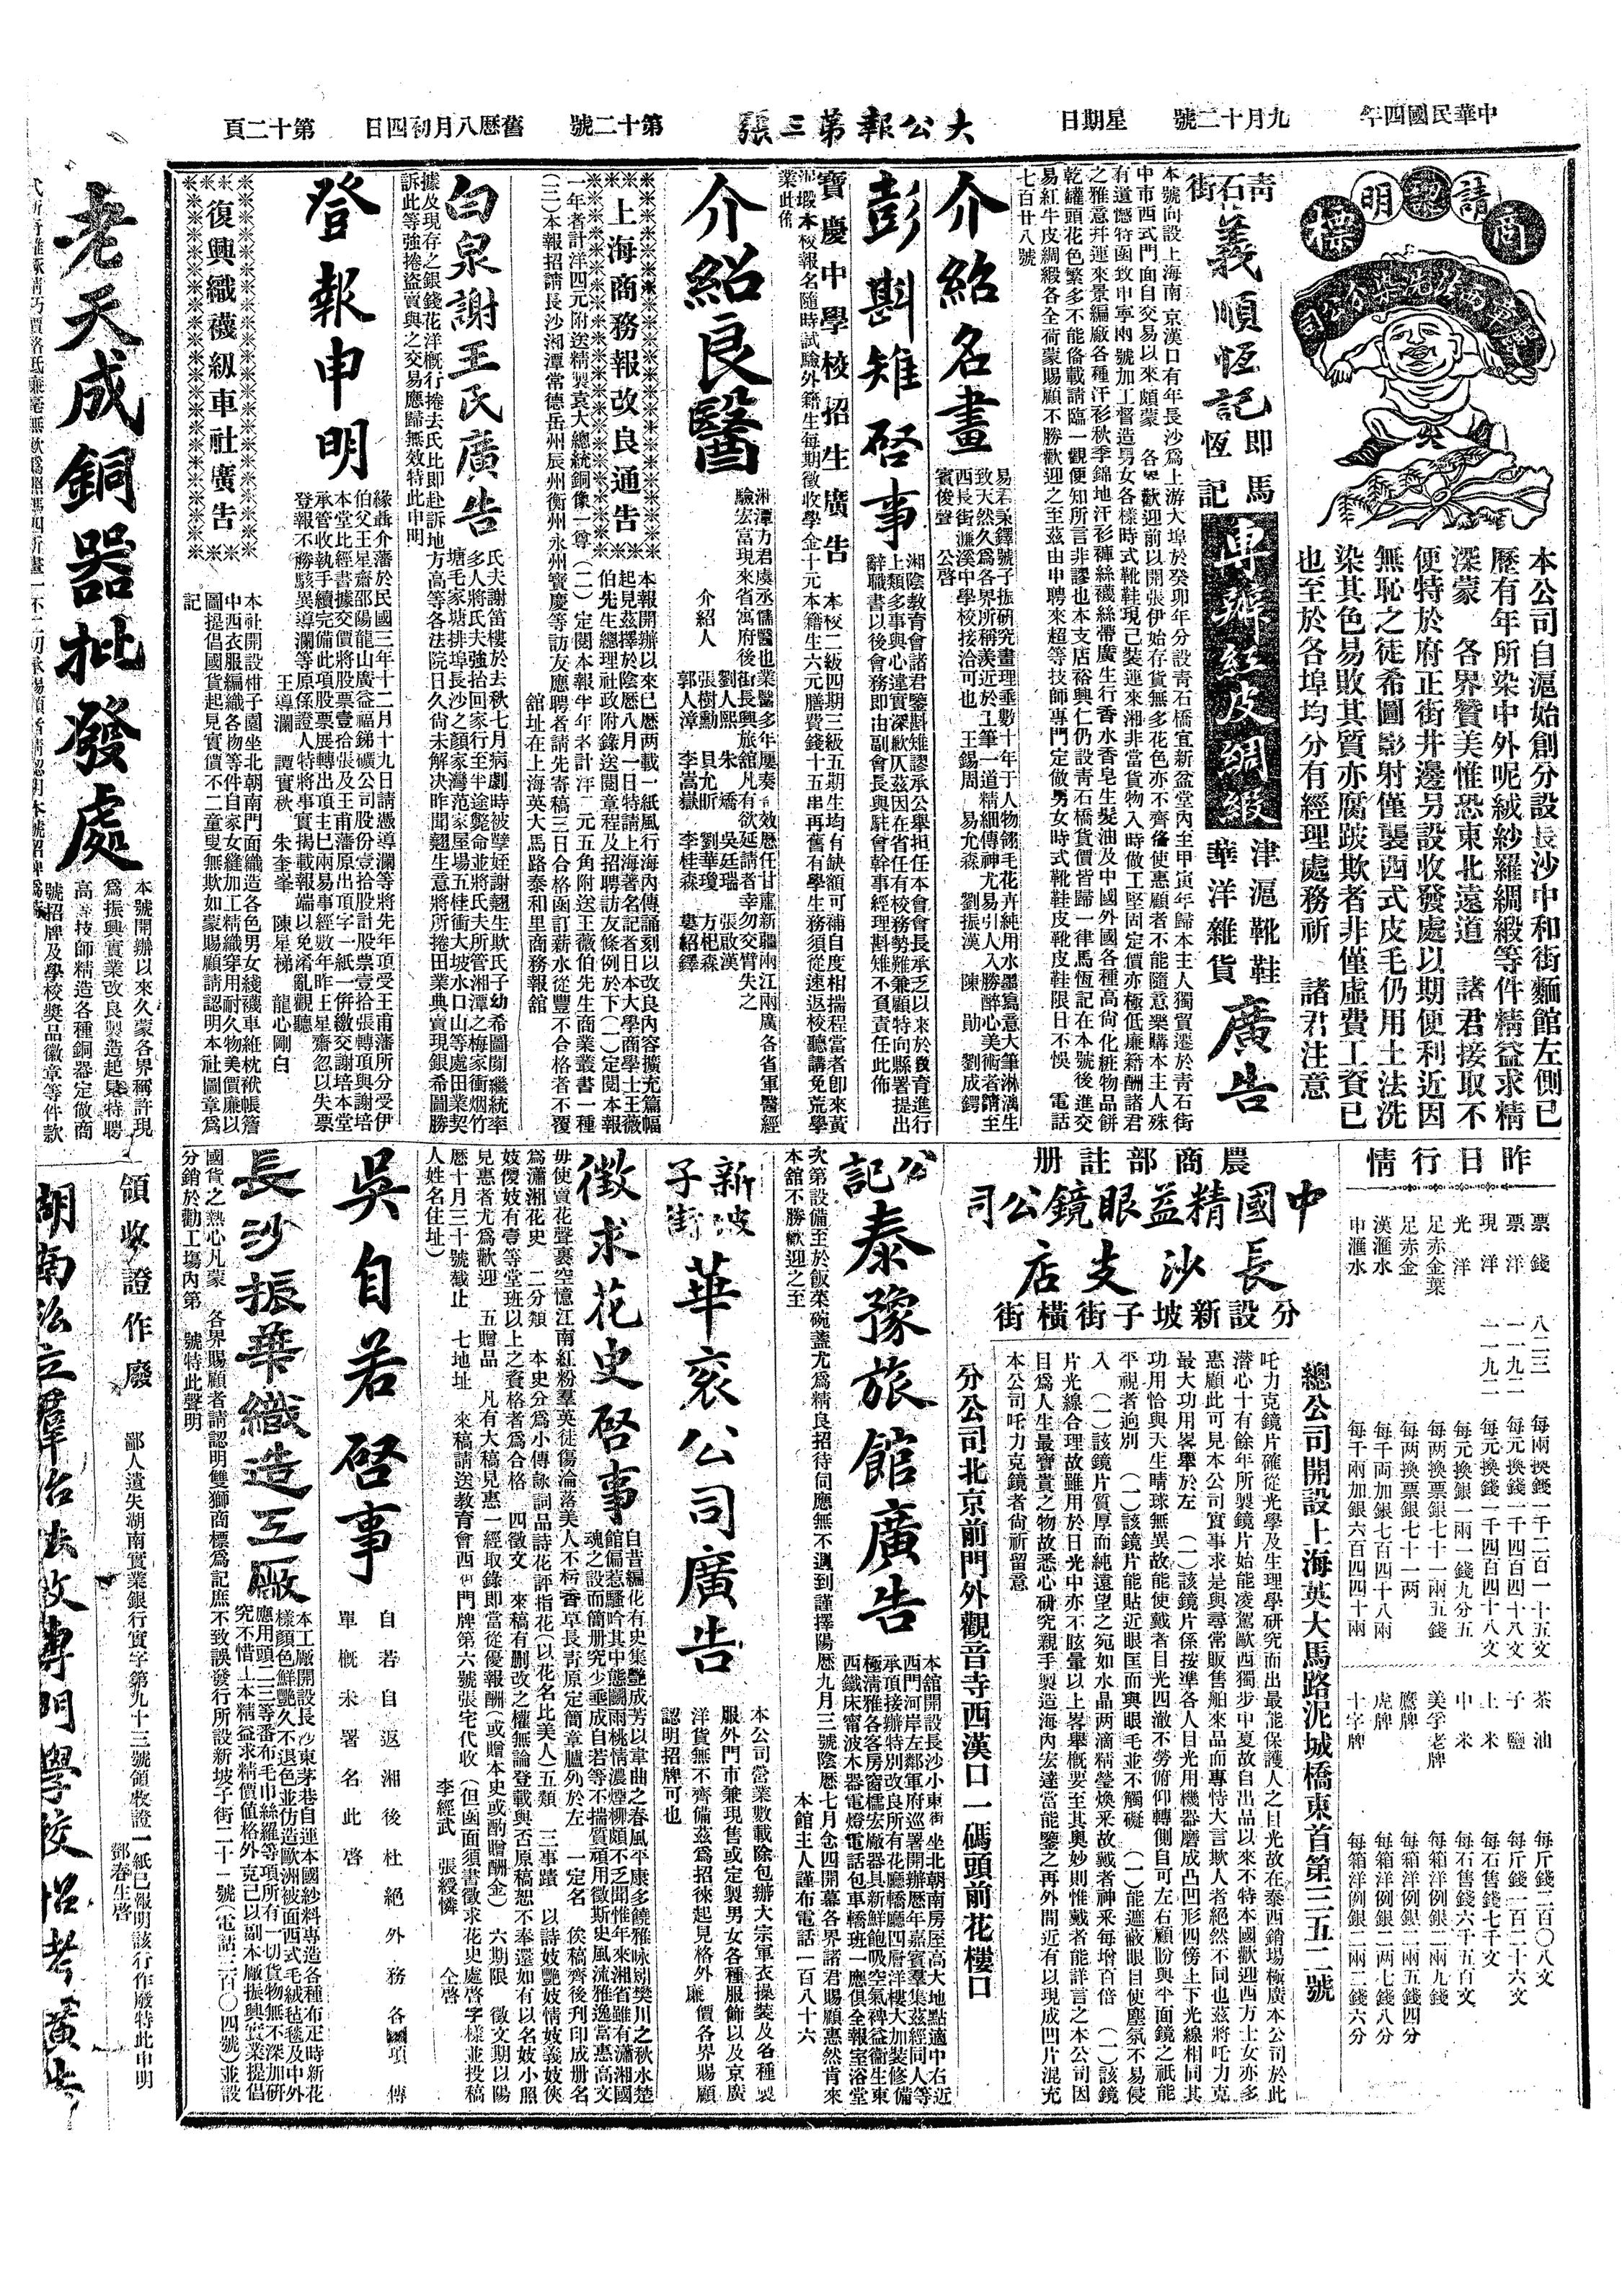 中華民國四年
九月十二號
星期日
大公報第三張
第十二號
舊歷八月初四日
第十二頁
商
請
認
明
標
本公司自滬始創分設長沙中和街麵館左側已
歷有年所染中外呢絨紗羅綢緞等件精益求精
深蒙 各界贊美惟恐東北遠道 諸君接取不
便特於府正街井邊另設收發處以期便利近因
無恥之徒希圖影射僅襲西式皮毛仍用土法洗
染其色易敗其質亦腐跛欺者非僅虛費工資已
也至於各埠均分有經理處務祈 諸君注意
青石街
義順恆記
即馬恆記
津滬靴鞋
華洋雜貨
廣告
本號向設上海南京漢口有年長沙爲上游大埠於癸卯年分設青石橋宜新盆堂內至甲寅年歸本主人獨貿遷於青石街
中市西式門面自交易以來頗蒙 各界歡迎前以開張伊始存貨無多花色亦不齊備使惠顧者不能隨意樂購本主人殊
有遺憾特函致申寧兩號加工督造男女各樣時式靴鞋現已裝運來湘非當貨物入時做工堅固定價亦極低廉藉酬諸君
之雅意幷運來景綸廠各種汗衫秋季錦地汗衫褲絲襪絲帶廣生行香水香皂生髮油及中國外國各種高尚化粧物品餅
乾罐頭花色繁多不能備載請臨一觀便知所言非謬也本支店裕興仁仍設青石橋貨價皆歸一律馬恆記在本號後進交
易紅牛皮綢緞各全荷蒙賜顧不勝歡迎之至茲由申聘來超等技師專門定做男女時式靴鞋皮靴皮鞋限日不悞 電話
七百廿八號
介紹名畫
易君彔鐸號子振研究畫理垂數十年于人物翎毛花卉純用水墨寫意大筆淋漓生
致天然久爲各界所稱羨近於工筆一道精細傳神尤易引人入勝醉心美術者請至
西長街濂溪中學校接洽可也 王錫周 易允森 劉振漢 陳勛 劉成鍔
賓俊聲 公啓
彭斟雉啓事
湘陰教育會諸君鑒斟雉謬承公舉担任本會會長承乏以來於敎育進行
上類多事與心違實深歉仄茲因在省任有校務勢難兼顧特向縣署提出
辭職書以後會務即由副會長與駐會幹事經理斟雉不負責任此佈
寶慶中學校招生廣告
本校二級四期三級五期生均有缺額可補自度相揣程當者卽來黃
泥塅本校報名隨時試驗外籍生每期徵收學金十元本籍生六元膳費錢十五串再舊有學生務須從速返校聽講免荒學
業此佈
介紹良醫
湘潭方君虞丞儒醫也業醫多年屢奏奇效應任甘肅新疆兩江兩廣各省軍醫經
驗宏富現來省寓府後街長興旅舘凡有欲延請者幸勿交臂失之
介紹人
劉人熙 朱矞 吳廷瑞 張啟漢
張樹勳 貝允昕 劉華瓊 方杞森
郭人漳 李嵩嶽 李桂森 婁紹鐸
上海商務報改良通告
本報開辦以來已歷兩載一紙風行海內傳誦刻以改良內容擴充篇幅
起見茲擇於陰歷八月一日特請上海著名記者日本大學商學士王薇
伯先生總理社政附錄送閱章程及招聘訪友條例於下(一)定閱本報
一年者計洋四元附送精製袁大總統銅像一尊(二)定閱本報半年者計洋二元五角附送王薇伯先生商業叢書一種
(三)本報招請長沙湘潭常德岳州辰州衡州永州寶慶等訪友應聘者請先寄稿三日合格函訂薪水從豐不合格者不覆
舘址在上海英大馬路泰和里商務報舘
白泉謝王氏廣告
氏夫謝笛樓於去秋七月病劇時被孽姪謝翹生欺氏子幼希圖閒繼統率
多人將氏夫強抬回家行至半途斃命並將氏夫所管湘潭之梅家衝烟竹
塘毛家塘排埠長沙之顏家灣范家屋場五桂衝大坡水口山等處田業契
據及現存之銀錢花洋概行捲去氏比即赴訴地方高等各法院日久尙未解決昨聞翹生意將所捲田業典賣現銀希圖勝
訴此等強捲盜賣與之交易應歸無效特此申明
登報申明
緣聶介藩於民國三年十二月十九日請憑導瀾等將先年頂受王甫藩所分受伊
伯父王星齋邵陽龍山廣益福錫礦公司股份壹拾股計股票壹拾張轉頂與謝培
本堂比經書據交價將股票壹拾張及王甫藩原出頂字一紙一併繳交謝培本堂
承管收執手續完備此項股票展轉出頂主已兩易事經數年昨王星齋忽以失票
登報不勝駭異導瀾等原係證人特將事實揭載報端以免淆亂觀聽
王導瀾 譚實秋 朱奎峯 陳星梯 龍心剛白
復興織襪級車社廣告
本社開設柑子園坐北朝南門面織造各色男女綫襪車紙枕袱帳簷
中西衣服編織各物等件自家女縫加工精織穿用耐久物美價廉以
圖提倡國貨起見實價不二童叟無欺如蒙賜顧請認明本社圖章爲
記
老天成銅器批發處
本號開辦以來久蒙各界稱許現
爲振興實業改良製造起見特聘
高等技師精造各種銅器定做商
號招牌及學校獎品徽章等件款
昨日行情
票錢 八二三 每兩換錢一千二百一十五文
票洋 一一九二 每元換錢一千四百四十八文
現洋 一一九二 每元換錢一千四百四十八文
光洋 每元換銀一兩一錢九分五
足赤金葉 每兩換票銀七十一兩五錢
足赤金 每兩換票銀七十一两
漢滙水 每千両加銀七百四十八兩
申滙水 每千兩加銀六百四四十兩
茶油 每斤錢二百〇八文
子鹽 每斤錢一百二十六文
上米 每石售錢七千文
中米 每石售錢六千五百文
美孚老牌 每箱洋例銀二兩九錢
鷹牌 每箱洋例銀二兩五錢四分
虎牌 每箱洋例銀二两七錢八分
十字牌 每箱洋例銀二兩二錢六分
農商部註册
中國精益眼鏡公司
長沙支店
分設新坡子街橫街
總公司開設上海英大馬路泥城橋東首第三五二號
吒力克鏡片確從光學及生理學研究而出最能保護人之目光故在泰西銷場極廣本公司於此
潛心十有餘年所製鏡片始能凌駕歐西獨步中夏故自出品以來不特本國歡迎西方士女亦多
惠顧此可見本公司實事求是與尋常販售舶來品而專恃大言欺人者絕然不同也茲將吒力克
最大功用畧舉於左 (一)該鏡片係按準各人目光用機器磨成凸凹形四傍上下光線相同其
功用恰與天生睛球無異故能使戴者目光四澈不勞俯仰轉側自可左右顧盼與平面鏡之祇能
平視者逈別 (一)該鏡片能貼近眼匡而與眼毛並不觸礙 (一)能遮蔽眼目使塵氛不易侵
入 (一)該鏡片質厚而純遠望之宛如水晶两滴精瑩煥釆故戴者神釆每增百倍 (一)該鏡
片光線合理故雖用於日光中亦不眩暈以上畧舉概要至其奧妙則惟戴者能詳言之本公司因
目爲人生最寶貴之物故悉心研究親手製造海內宏達當能鑒之再外間近有以現成凹片混充
本公司吒力克鏡者尙祈留意
分公司北京前門外觀音寺西漢口一碼頭前花樓口
公記泰豫旅館廣告
本舘開設長沙小東街坐北朝南房屋高大地點適中右近
西門河岸左鄰軍府巡署開辦歷年嘉賓羣集茲經同人等
承頂接辦特別改良所有花廳轎廳四層洋樓大加裝修備
極清雅各客房窗欞宏廠器具新鮮飽吸空氣裨益衞生東
西鐵床甯波木器電燈電話包車轎班一應俱全報室浴堂
次第設備至於飯菜碗盞尤爲精良招待伺應無不週到謹擇陽歷九月三號陰歷七月念四開幕各界諸君賜顧惠然肯來
本舘不勝歡迎之至 本館主人謹布電話一百八十六
新坡子街
華衮公司廣告
本公司營業數載除包辦大宗軍衣操裝及各種製
服外門市兼現售或定製男女各種服飾以及京廣
洋貨無不齊備茲爲招徠起見格外廉價各界賜顧
認明招牌可也
徵求花史啓事
自昔編花有史集豔成芳以韋曲之春風平康多饒雅咏別樊川之秋水楚
館偏惹騷吟其中態鬭雨桃情濃煙柳頗不乏聞惟年來湘省雖有瀟湘國
魂之設而簡册究少垂成自若等不揣質頑用徵斯史風流雅逸當惠高文
毋使賣花聲裹空憶江南紅粉羣英徒傷淪落美人不栉香草長青原定簡章臚列於左 一定名 俟稿齊後刋印成册名
爲瀟湘花史 二分類 本史分爲小傳詠詞品詩花評指花(以花名比美人)五類 三事蹟 以詩妓艷妓情妓義妓俠
妓儍妓有壹等堂班以上之資格者爲合格 四徵文 來稿有删改之權無論登載與否原稿恕不奉還如有以名妓小照
見惠者尤爲歡迎 五贈品 凡有大稿見惠一經取錄即當從優報酬(或贈本史或酌贈酬金) 六期限 徵文期以陽
歷十月三十號截止 七地址 來稿請送教育會西側門牌第六號張宅代收(但函面須書徵求花史處啓字樣並投稿
人姓名住址) 李經武 張綬憐 仝啓
吳自若啓事
自若自返湘後杜絕外務各項傳
單概未署名此啓
長沙振華織造工廠
本工廠開設長沙東茅巷自運本國紗料專造各種布疋時新花
樣顏色鮮艷久不退色並仿造歐洲被面西式毛絨毡毯及中外
應用頭二三等番布毛巾絲羅等項所有一切貨物無不深加研
究不惜工本精益求精價值格外克己以副本廠振興實業提倡
國貨之熱心凡蒙 各界賜顧者請認明雙獅商標爲記庶不致誤發行所設新坡子街二十一號(電話二百〇四號)並設
分銷於勸工塲內第 號特此聲明
領收證作廢
鄙人遺失湖南實業銀行實字第九十三號領收證一紙已報明該行作廢特此申明
鄧春生啓
湖南公立羣治法政專門學校招考廣告